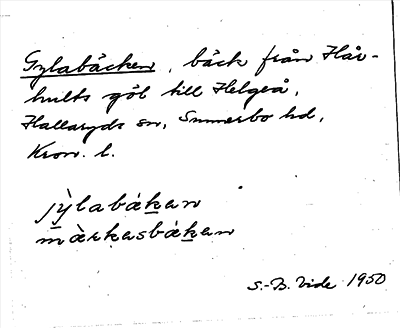 Gylabäcken, bäck från Hår-
hults göl till Helgeå,
Hallaryds sn, Sunnerbo hd,
Kron. l.
jỳlabákan
màrkasbákan
S.-B. Vide 1950